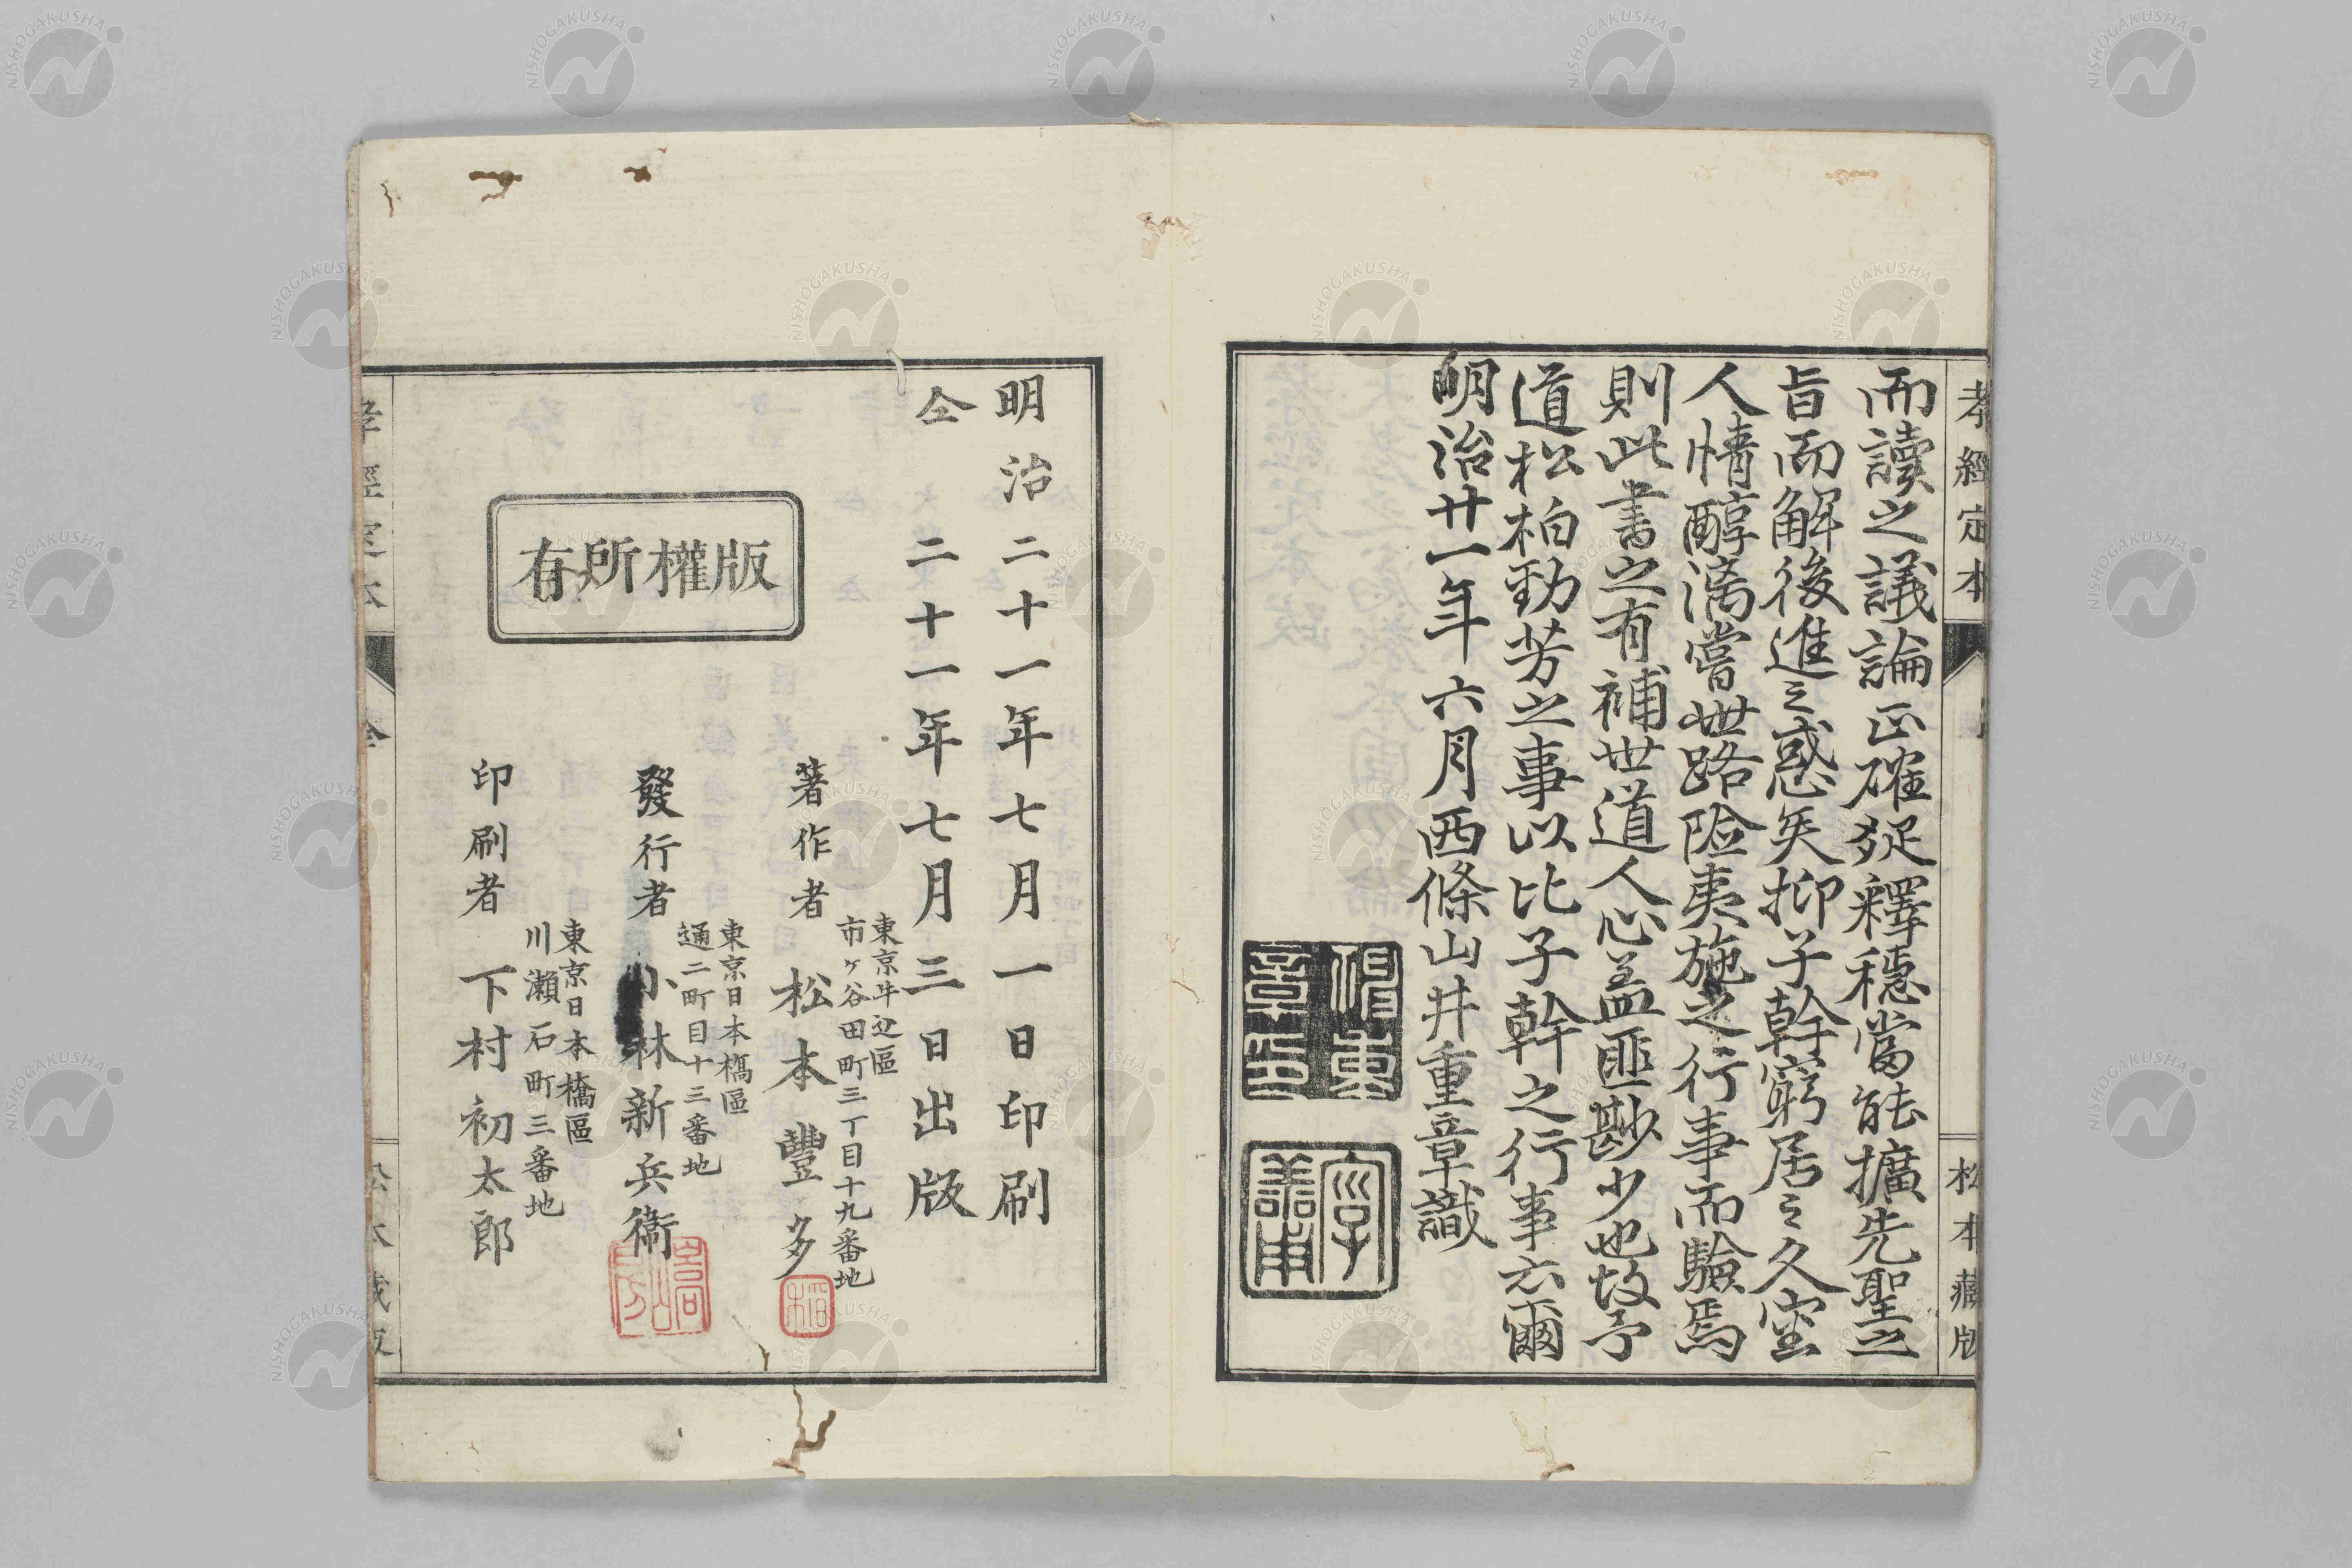 孝經定本
松本藏版
而讀之議論正確疑釋穩當能擴先聖之
旨而解後進之惑矣抑子幹窮居之久室
人情醇漓嘗世路險夷施之行事而驗焉
則此書之有補世道人心盖匪尠少也故予
道松柏勁芳之事以比子幹之行事云爾
明治廿一年六月西條山井重章識
明治二十一年七月一日印刷
仝二十一年七月三日出版
版權所有
東京牛込區
市ヶ谷田町三丁目十九番地
著作者 松本豐多
東京日本橋區
通二町目十三番地
發行者 小林新兵衞
東京日本橋區
川瀬石町三番地
印刷者 下村初太郎
NISHOGAKUSHA